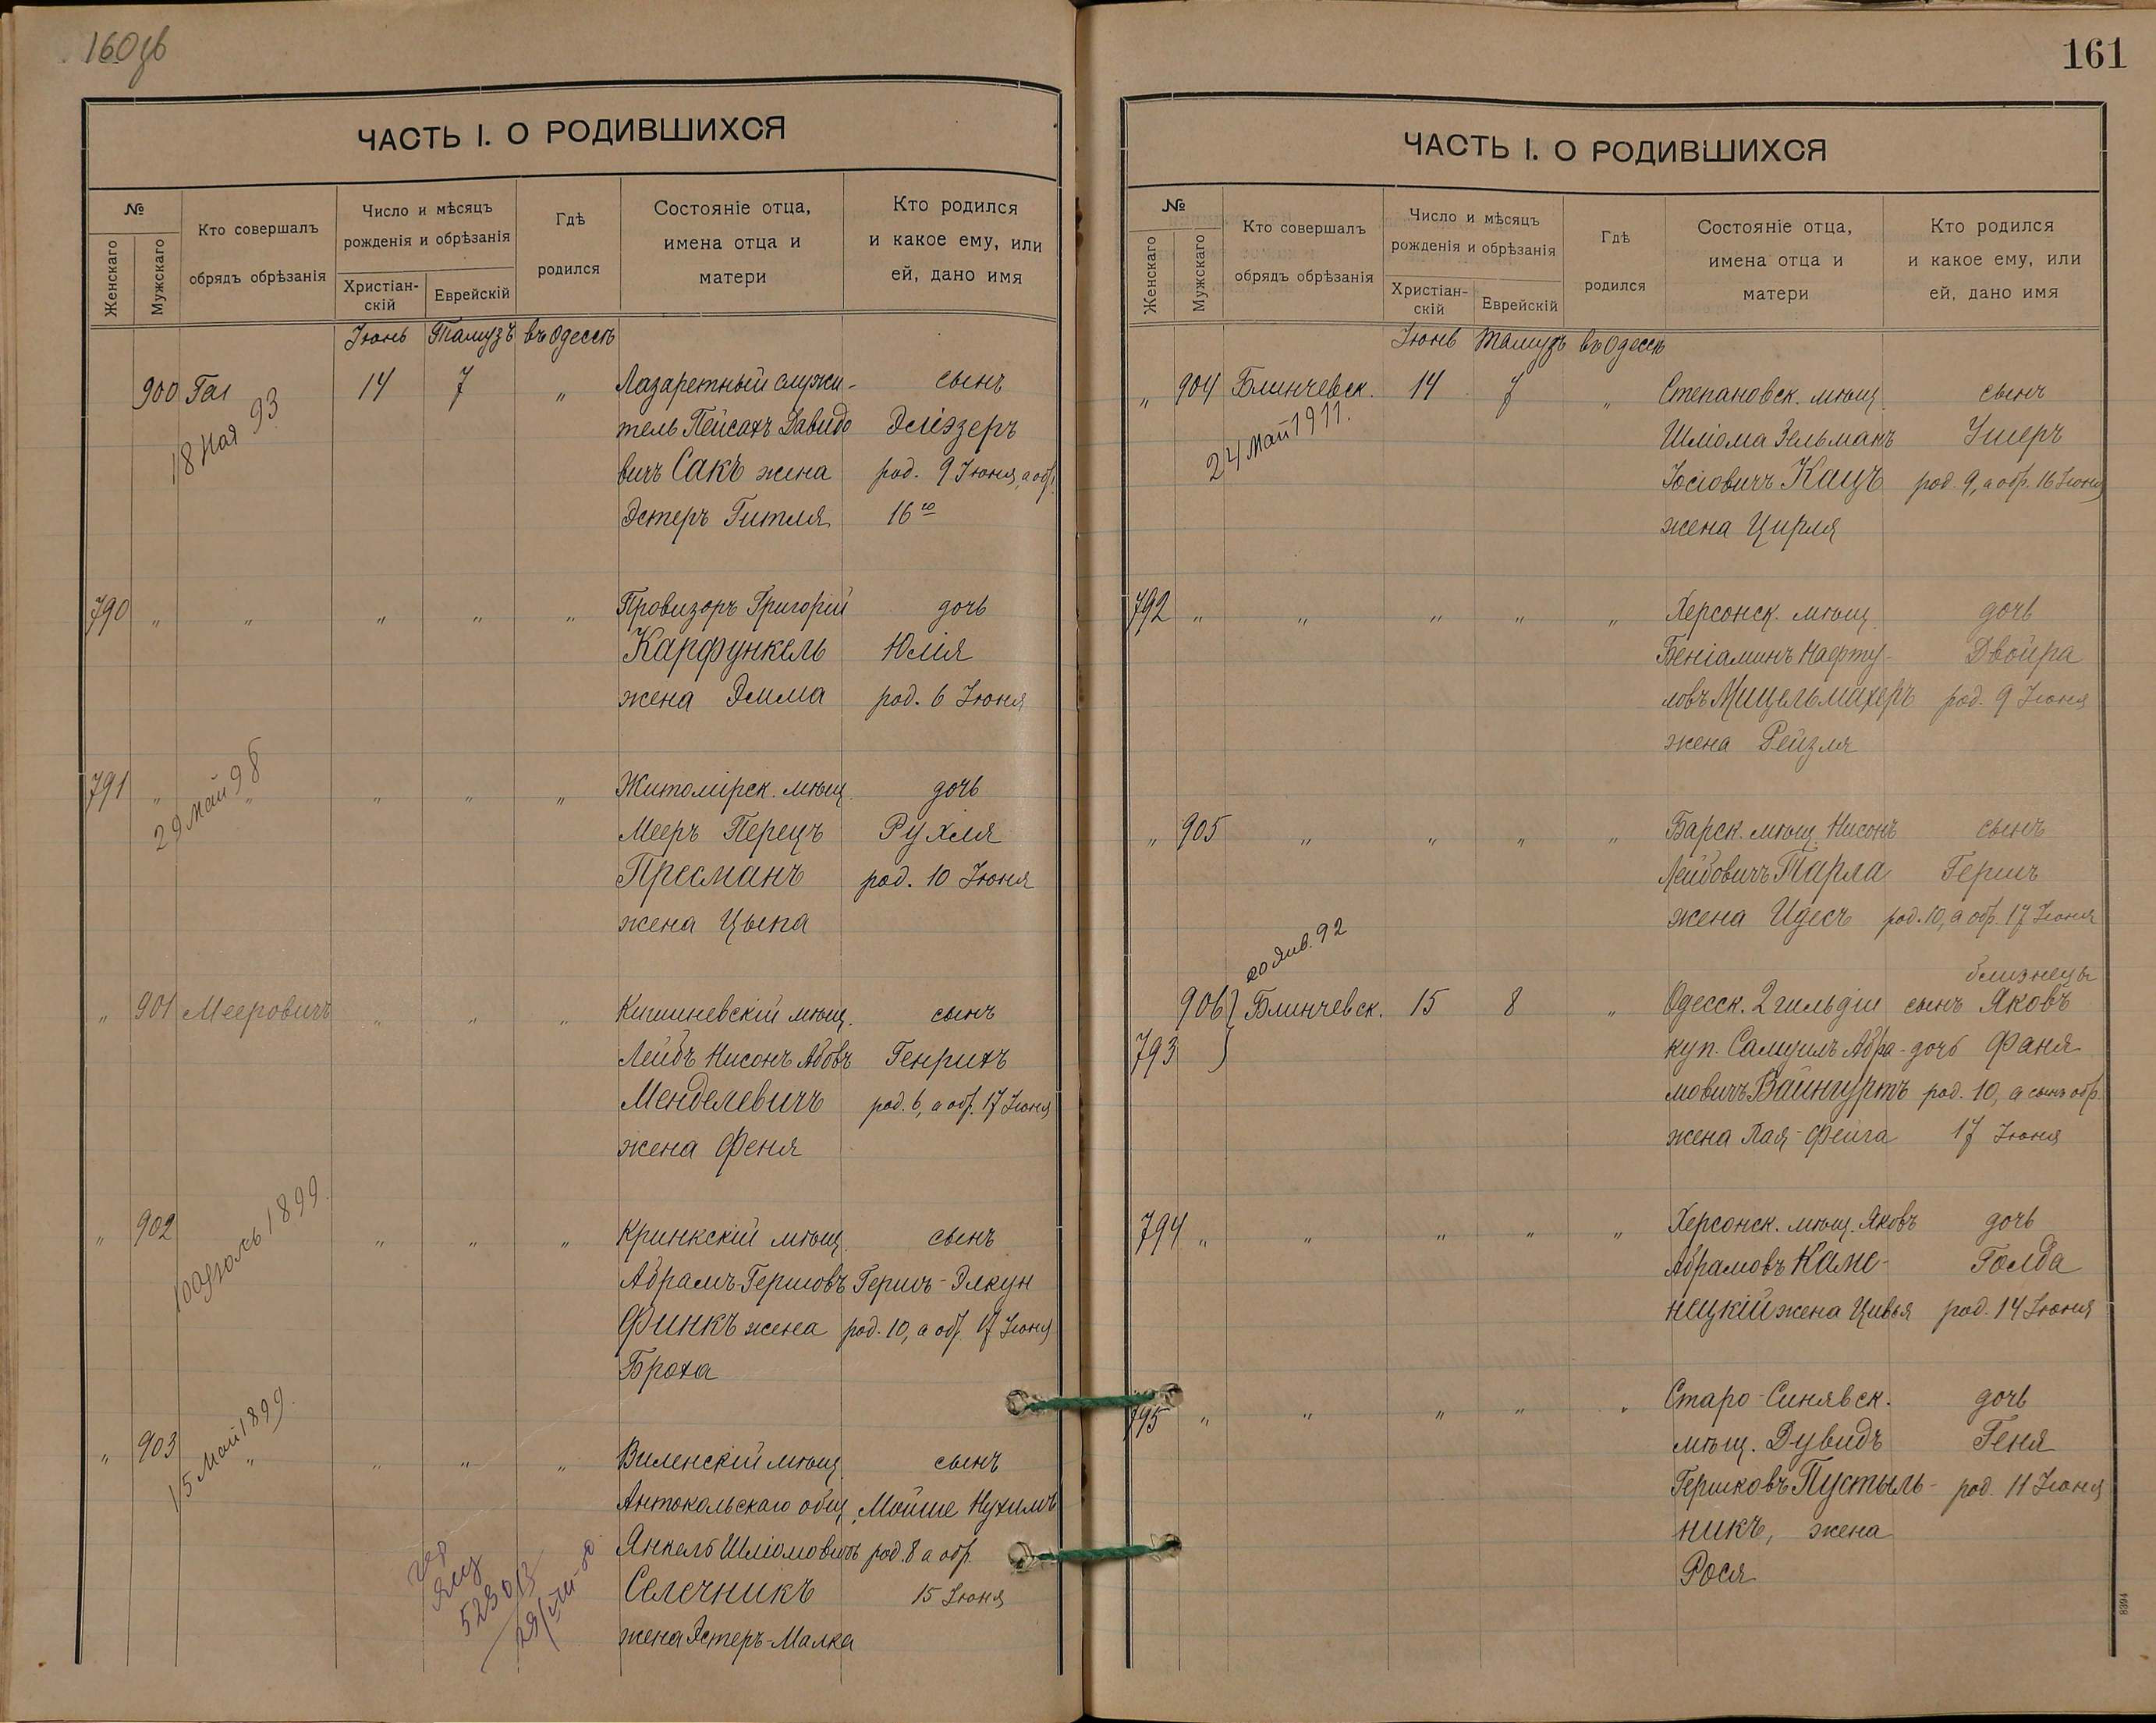 160об
ЧАСТЬ I. О РОДИВШИХСЯ
№
Женскаго
Мужскаго
Кто совершалъ
обрядъ обрѣзанія
Число и мѣсяцъ
рожденія и обрѣзанія
Христіан-
скій
Еврейскій
Гдѣ
родился
Состояніе отца,
имена отца и
матери
Кто родился
и какое ему, или
ей, дано имя
Іюнь Тамузъ въ Одессѣ
900 Гал 14 7 „ Лазаретный служи- сынъ
18 Мая 93
тель Пейсахъ Давидо Эліэзеръ
вичъ Сакъ жена род. 9 Іюня, а обр.
Эстеръ Гитля 16го
790 „ „ „ „ „ Провизоръ Григорій дочь
Карфункель Юлія
жена Эмма род. 6 Іюня
791 „ „ „ „ „ Житомірск. мѣщ. дочь
29 май 98
Мееръ Перецъ Рухля
Пресманъ род. 10 Іюня
жена Цыпа
„ 901 Мееровичъ „ „ „ Кишиневскій мѣщ. сынъ
Лейбъ Нисонъ Абовъ Генрихъ
Менделевичъ род. 6, а обр. 17 Іюня
жена Феня
„ 902 „ „ „ Кринкскій мѣщ. сынъ
1899
Абрамъ-Гершовъ Гершъ-Элкун
Финкъ жена род. 10, а обр. 17 Іюня
Броха
„ 903 „ „ „ „ Виленскій мѣщ. сынъ
15 Май 1899.
Антокольскаго общ. Мойше Нухимъ
Янкель Шліомовичъ род. 8 а обр.
Селечникъ 15 Іюня
жена Эстеръ-Малка
161
ЧАСТЬ I. О РОДИВШИХСЯ
№
Женскаго
Мужскаго
Кто совершалъ
обрядъ обрѣзанія
Число и мѣсяцъ
рожденія и обрѣзанія
Христіан-
скій
Еврейскій
Гдѣ
родился
Состояніе отца,
имена отца и
матери
Кто родился
и какое ему, или
ей, дано имя
Іюнь Тамузъ въ Одессѣ
„ 904 Блинчевск. 14 7 „ Степановск. мѣщ. сынъ
24 май 1911.
Шліома Зельманъ Ушеръ
Іосіовичъ Кацъ род. 9, а обр. 16 Іюня
жена Цирля
792 „ „ „ „ „ Херсонск. мѣщ. дочь
Беніаминъ Нафту- Двойра
ловъ Мицельмахеръ род. 9 Іюня
жена Рейзля
„ 905 „ „ „ „ Барск. мѣщ. Нисонъ сынъ
Лейбовичъ Тарла Гершъ
жена Идесъ род. 10, а обр. 17 Іюня
20 Янв. 92
близнецы
906 } Блинчевск. 15 8 „ Одесск. 2 гильдіи сынъ Яковъ
793 куп. Самуилъ Абра- дочь Фаня
мовичъ Вайнгуртъ род. 10, а сынъ обр.
жена Хая-Фейга 17 Іюня
794 „ „ „ „ „ Херсонск. мѣщ. Яковъ дочь
Абрамовъ Каме- Голда
нецкій жена Цивья род. 14 Іюня
795 „ „ „ „ „ Старо-Синявск. дочь
мѣщ. Дувидъ Геня
Гершковъ Пустыль- род. 11 Іюня
никъ, жена
Рося
8394